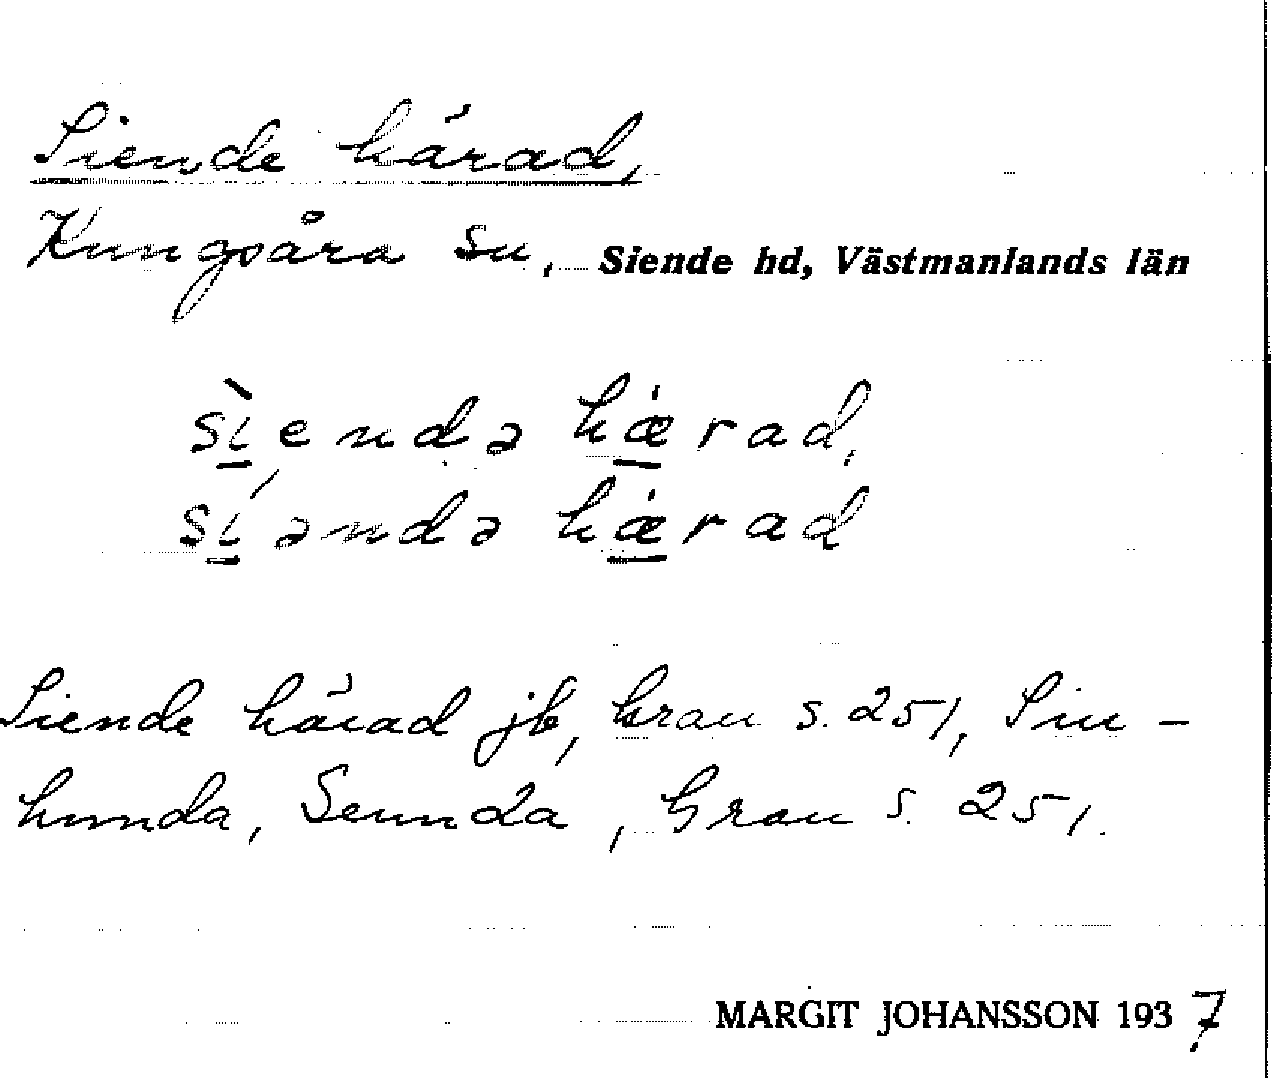 Siende härad,
Kungsåra sn, Siende hd, Västmanlands län
sì̱endə hǽ̱rad,
sí̱əndə hǽ̱rad
Siende härad jb, Grau s. 251, Sin-
hunda, Seunda, Grau s. 251.
MARGIT JOHANSSON 1937